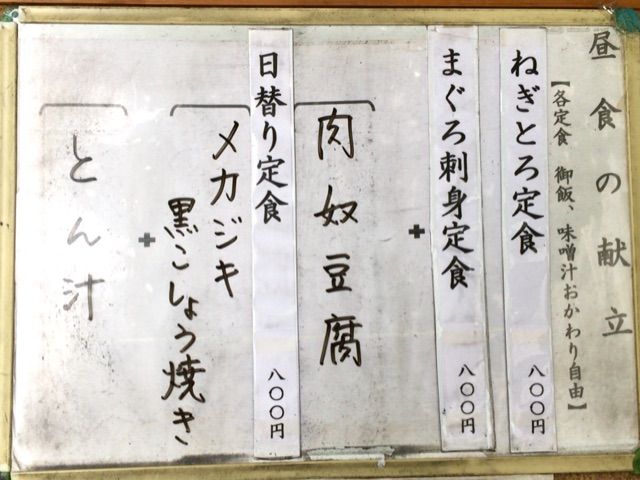 昼食の献立
【各定食 御飯、味噌汁おかわり自由】
ねぎとろ定食 八〇〇円
まぐろ刺身定食 八〇〇円
+
肉奴豆腐
日替り定食 八〇〇円
メカジキ
黒こしょう焼き
+
とん汁